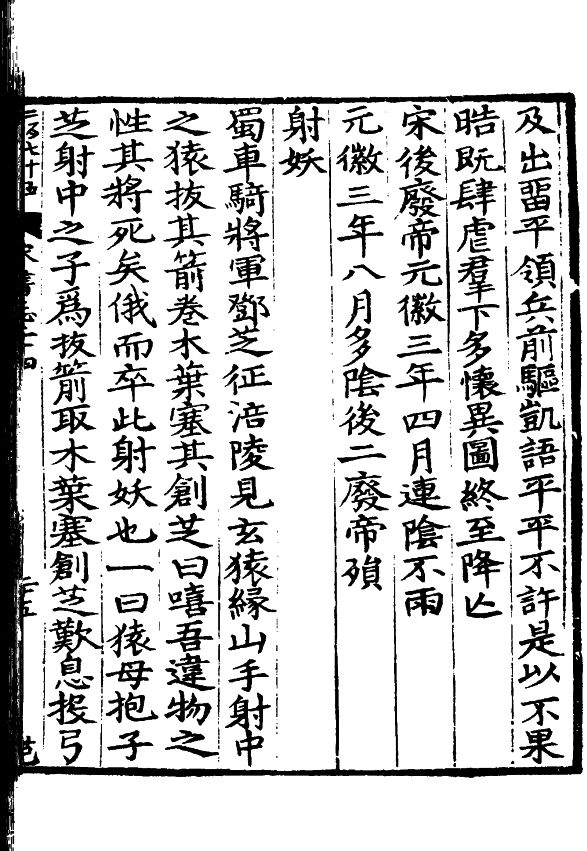 及出畱平領兵前驅凱語平平不許是以不果
晧旣肆虐羣下多懷異圖終至降亾
宋後廢帝元徽三年四月連陰不雨
元徽三年八月多陰後二廢帝殞
射妖
蜀車騎將軍鄧芝征涪陵見玄猿緣山手射中
之猿拔其箭卷木葉塞其創芝曰嘻吾違物之
性其將死矣俄而卒此射妖也一曰猿母抱子
芝射中之子爲拔箭取木葉塞創芝歎息投弓
宋書志二十四
二十五